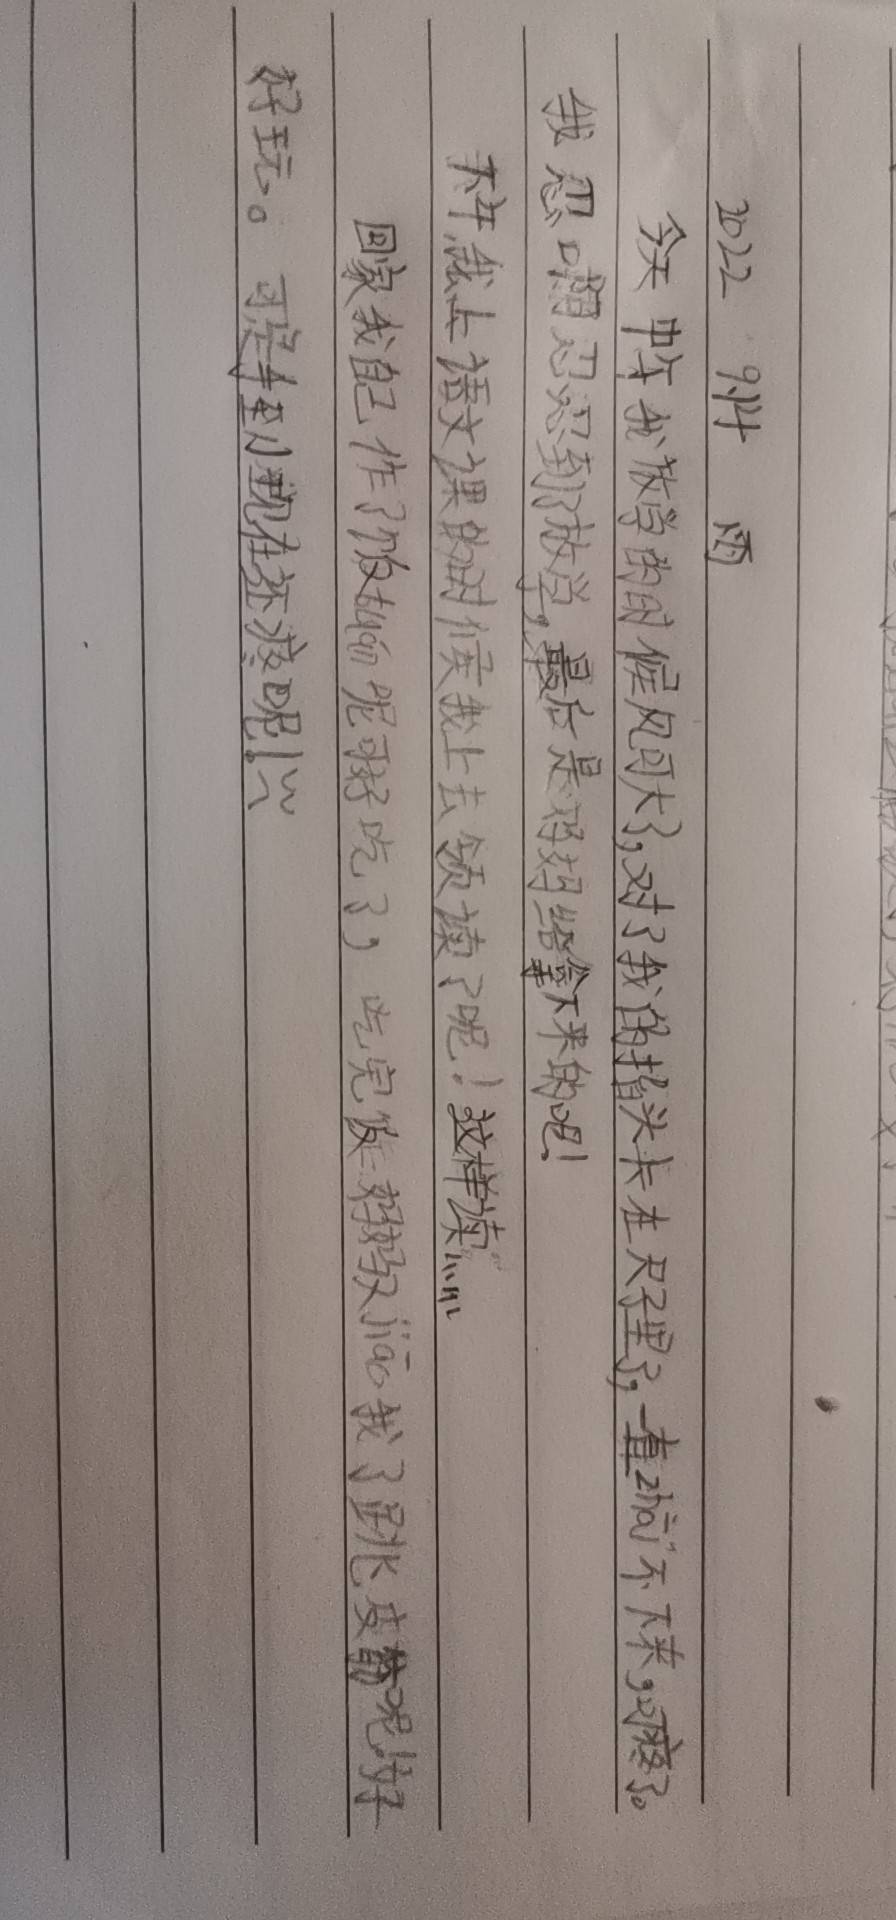 2022 9.14 雨
今天中午我放学的时候风可大了,对了我的指头卡在尺子里了,一直zhāi不下来,可疼了。
我忍啊忍忍到了放学,最后是妈妈给拿下来的吧!
我上语文课的时候我上去领读了呢!这样读......
回家我自己作了饭tuán呢可好吃了,吃完饭妈妈又jiāo我了跳皮筋呢!好
好玩。可是手到现在还疼呢!